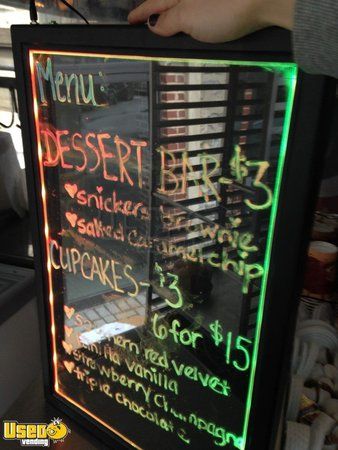 Menu:
DESSERT BAR - $3
♥ snickers brownie
♥ salted caramel chip
CUPCAKES - $3
6 for $15
♥ southern red velvet
♥ vanilla vanilla
♥ strawberry champagne
♥ triple chocolate
USED
vending